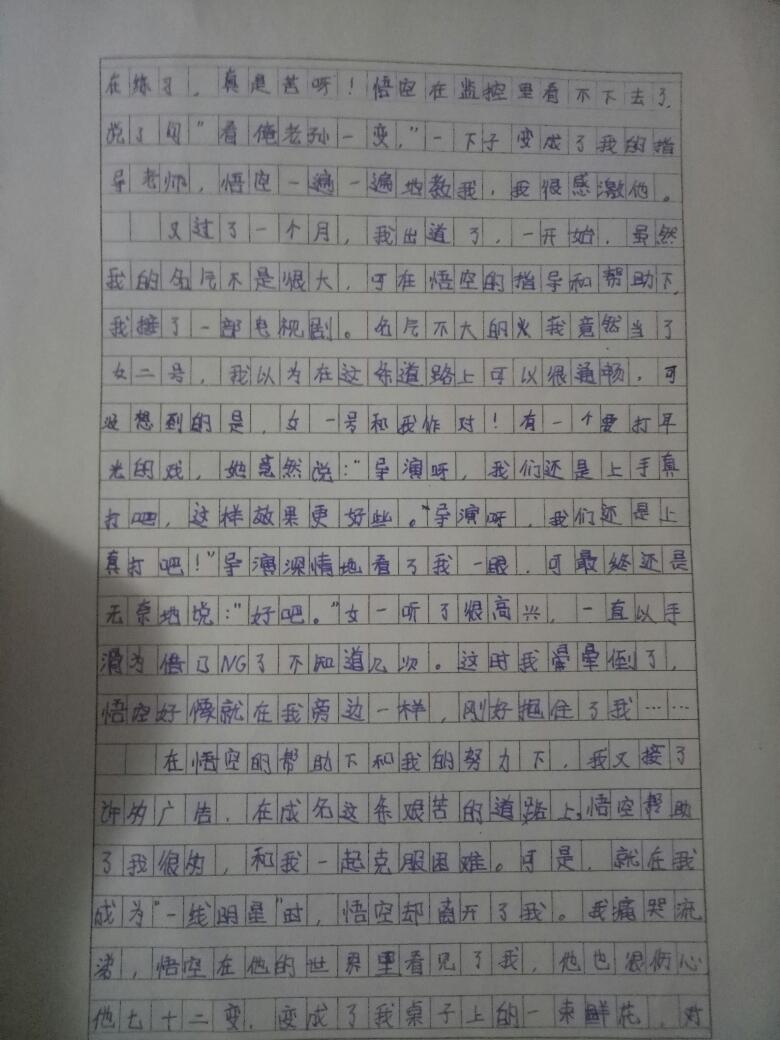 在练习，真是苦呀！悟空在监控里看不下去了，
说了句"看俺老孙一变，"一下子变成了我的指
导老师，悟空一遍一遍地教我，我很感激他。
又过了一个月，我出道了，一开始，虽然
我的名气不是很大，可在悟空的指导和帮助下，
我接了一部电视剧。名气不大的我竟然当了
女二号，我以为在这条道路上可以很通畅，可
没想到的是，女一号和我作对！有一个要打耳
光的戏，她竟然说："导演呀，我们还是上手真
打吧，这样效果更好些。"导演呀，我们还是上
真打吧！"导演深情地看了我一眼，可最终还是
无奈地说："好吧。"女一听了很高兴，一直以手
滑为借口NG了不知道几次。这时我晕晕倒了，
悟空好像就在我旁边一样，刚好抱住了我……
在悟空的帮助下和我的努力下，我又接了
许多广告，在成名这条艰苦的道路上，悟空帮助
了我很多，和我一起克服困难。可是，就在我
成为"一线明星"时，悟空却离开了我。我痛哭流
涕，悟空在他的世界里看见了我，他也很伤心
他七十二变，变成了我桌子上的一束鲜花，对